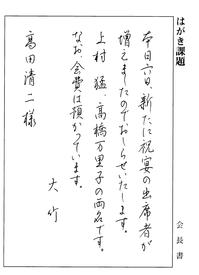 はがき課題
本日六日、新たに祝宴の出席者が
増えましたのでおしらせいたします。
上村 猛、高橋万里子の両名です。
なお、会費は預かっています。
大竹
高田清二様
会長書